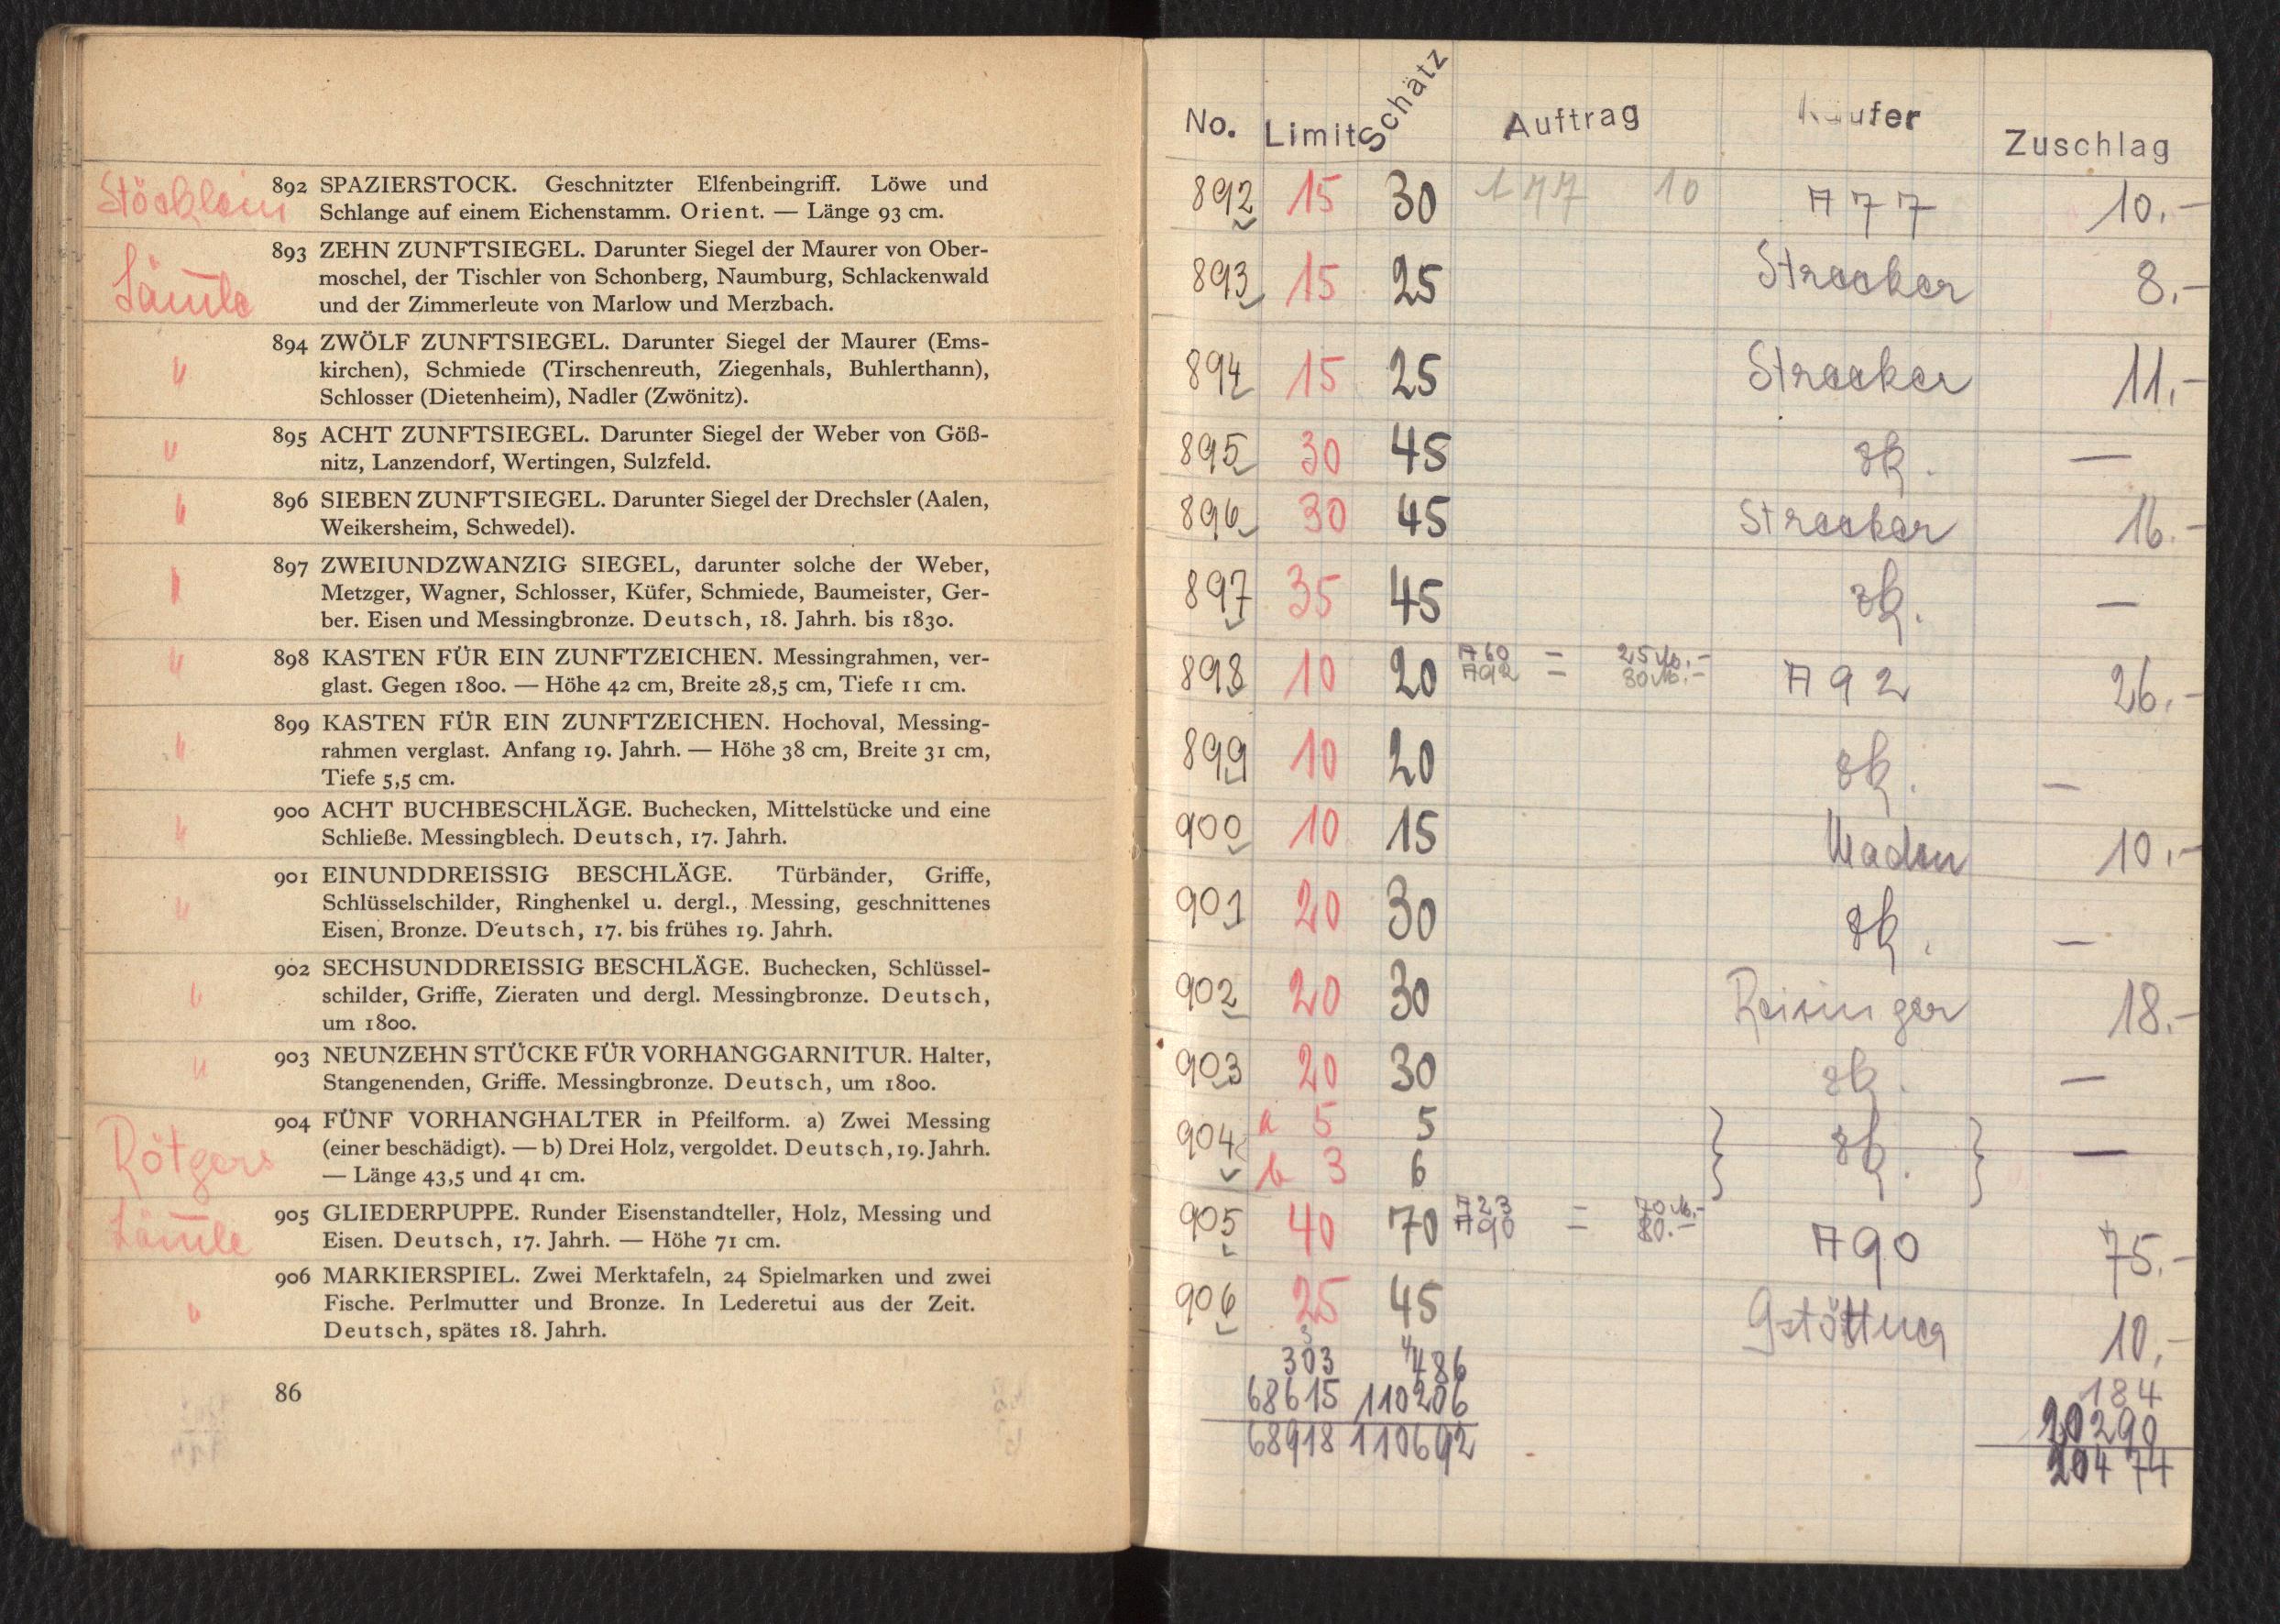 Stöcklein
892 SPAZIERSTOCK. Geschnitzter Elfenbeingriff. Löwe und
Schlange auf einem Eichenstamm. Orient. — Länge 93 cm.
893 ZEHN ZUNFTSIEGEL. Darunter Siegel der Maurer von Ober-
moschel, der Tischler von Schonberg, Naumburg, Schlackenwald
und der Zimmerleute von Marlow und Merzbach.
894 ZWÖLF ZUNFTSIEGEL. Darunter Siegel der Maurer (Ems-
kirchen), Schmiede (Tirschenreuth, Ziegenhals, Buhlerthann),
Schlosser (Dietenheim), Nadler (Zwönitz).
895 ACHT ZUNFTSIEGEL. Darunter Siegel der Weber von Göß-
nitz, Lanzendorf, Wertingen, Sulzfeld.
896 SIEBEN ZUNFTSIEGEL. Darunter Siegel der Drechsler (Aalen,
Weikersheim, Schwedel).
897 ZWEIUNDZWANZIG SIEGEL, darunter solche der Weber,
Metzger, Wagner, Schlosser, Küfer, Schmiede, Baumeister, Ger-
ber. Eisen und Messingbronze. Deutsch, 18. Jahrh. bis 1830.
898 KASTEN FÜR EIN ZUNFTZEICHEN. Messingrahmen, ver-
glast. Gegen 1800. — Höhe 42 cm, Breite 28,5 cm, Tiefe 11 cm.
899 KASTEN FÜR EIN ZUNFTZEICHEN. Hochoval, Messing-
rahmen verglast. Anfang 19. Jahrh. — Höhe 38 cm, Breite 31 cm,
Tiefe 5,5 cm.
900 ACHT BUCHBESCHLÄGE. Buchecken, Mittelstücke und eine
Schließe. Messingblech. Deutsch, 17. Jahrh.
901 EINUNDDREISSIG BESCHLÄGE. Türbänder, Griffe,
Schlüsselschilder, Ringhenkel u. dergl., Messing, geschnittenes
Eisen, Bronze. Deutsch, 17. bis frühes 19. Jahrh.
902 SECHSUNDDREISSIG BESCHLÄGE. Buchecken, Schlüssel-
schilder, Griffe, Zieraten und dergl. Messingbronze. Deutsch,
um 1800.
903 NEUNZEHN STÜCKE FÜR VORHANGGARNITUR. Halter,
Stangenenden, Griffe. Messingbronze. Deutsch, um 1800.
Rötgers
904 FÜNF VORHANGHALTER in Pfeilform. a) Zwei Messing
(einer beschädigt). — b) Drei Holz, vergoldet. Deutsch, 19. Jahrh.
— Länge 43,5 und 41 cm.
905 GLIEDERPUPPE. Runder Eisenstandteller, Holz, Messing und
Eisen. Deutsch, 17. Jahrh. — Höhe 71 cm.
906 MARKIERSPIEL. Zwei Merktafeln, 24 Spielmarken und zwei
Fische. Perlmutter und Bronze. In Lederetui aus der Zeit.
Deutsch, spätes 18. Jahrh.
86
No. Limit Schätz Auftrag Käufer Zuschlag
892 15 30 177 10 A 77 10.-
893 15 25 Strecker 8.-
894 15 25 Strecker 11.-
895 30 45 zk. —
896 30 45 Strecker 16.-
897 35 45 zk. —
898 10 20 A60 = 25 M.-
A92 = 30 M.- A 92 26.-
899 10 20 zk. —
900 10 15 10.-
901 20 30 zk. —
902 20 30 Reisinger 18.-
903 20 30 zk. —
904 a 5 5
b 3 6 zk. —
905 40 70 A23 = 70 M.-
A90 = 80.- A90 75.-
906 25 45 10.-
303 486 184
68615 110206 20290
68918 110692 20474